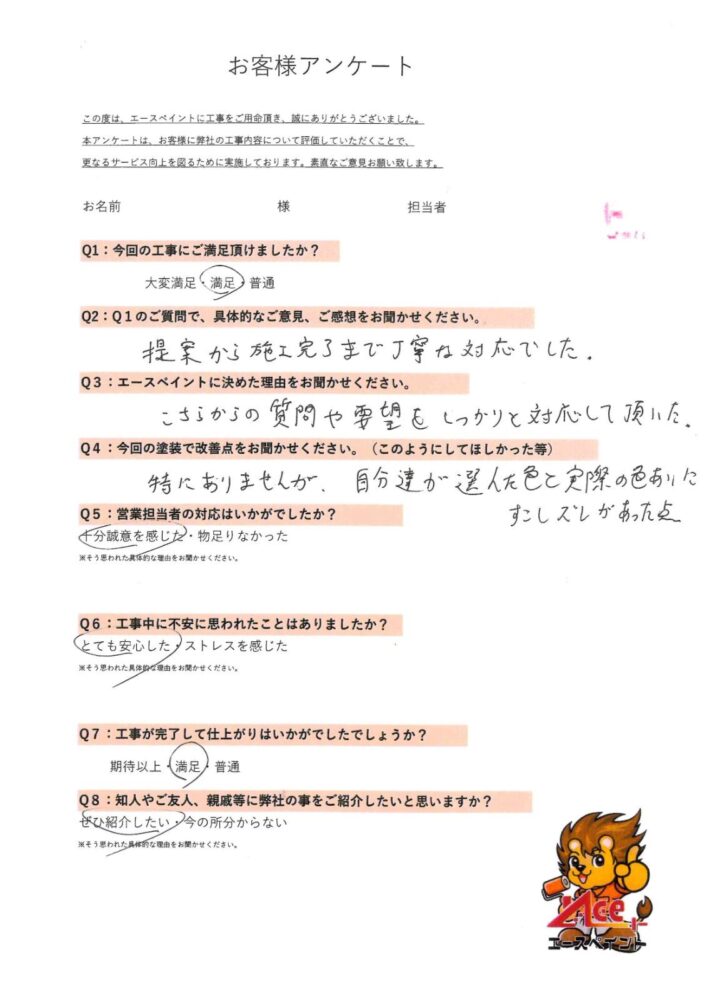 お客様アンケート
この度は、エースペイントに工事をご用命頂き、誠にありがとうございました。
本アンケートは、お客様に弊社の工事内容について評価していただくことで、
更なるサービス向上を図るために実施しております。素直なご意見お願い致します。
お名前 様 担当者
Q1：今回の工事にご満足頂けましたか？
大変満足・満足・普通
Q2：Q１のご質問で、具体的なご意見、ご感想をお聞かせください。
提案から施工完了まで丁寧な対応でした。
Q３：エースペイントに決めた理由をお聞かせください。
こちらからの質問や要望をしっかりと対応して頂いた。
Q４：今回の塗装で改善点をお聞かせください。（このようにしてほしかった等）
特にありませんが、自分達が選んだ色と実際の色あいに
すこしズレがあった点
Q５：営業担当者の対応はいかがでしたか？
十分誠意を感じた・物足りなかった
※そう思われた具体的な理由をお聞かせください。
Q６：工事中に不安に思われたことはありましたか？
とても安心した・ストレスを感じた
※そう思われた具体的な理由をお聞かせください。
Q７：工事が完了して仕上がりはいかがでしたでしょうか？
期待以上・満足・普通
Q８：知人やご友人、親戚等に弊社の事をご紹介したいと思いますか？
ぜひ紹介したい・今の所分からない
※そう思われた具体的な理由をお聞かせください。
Ace
エースペイント